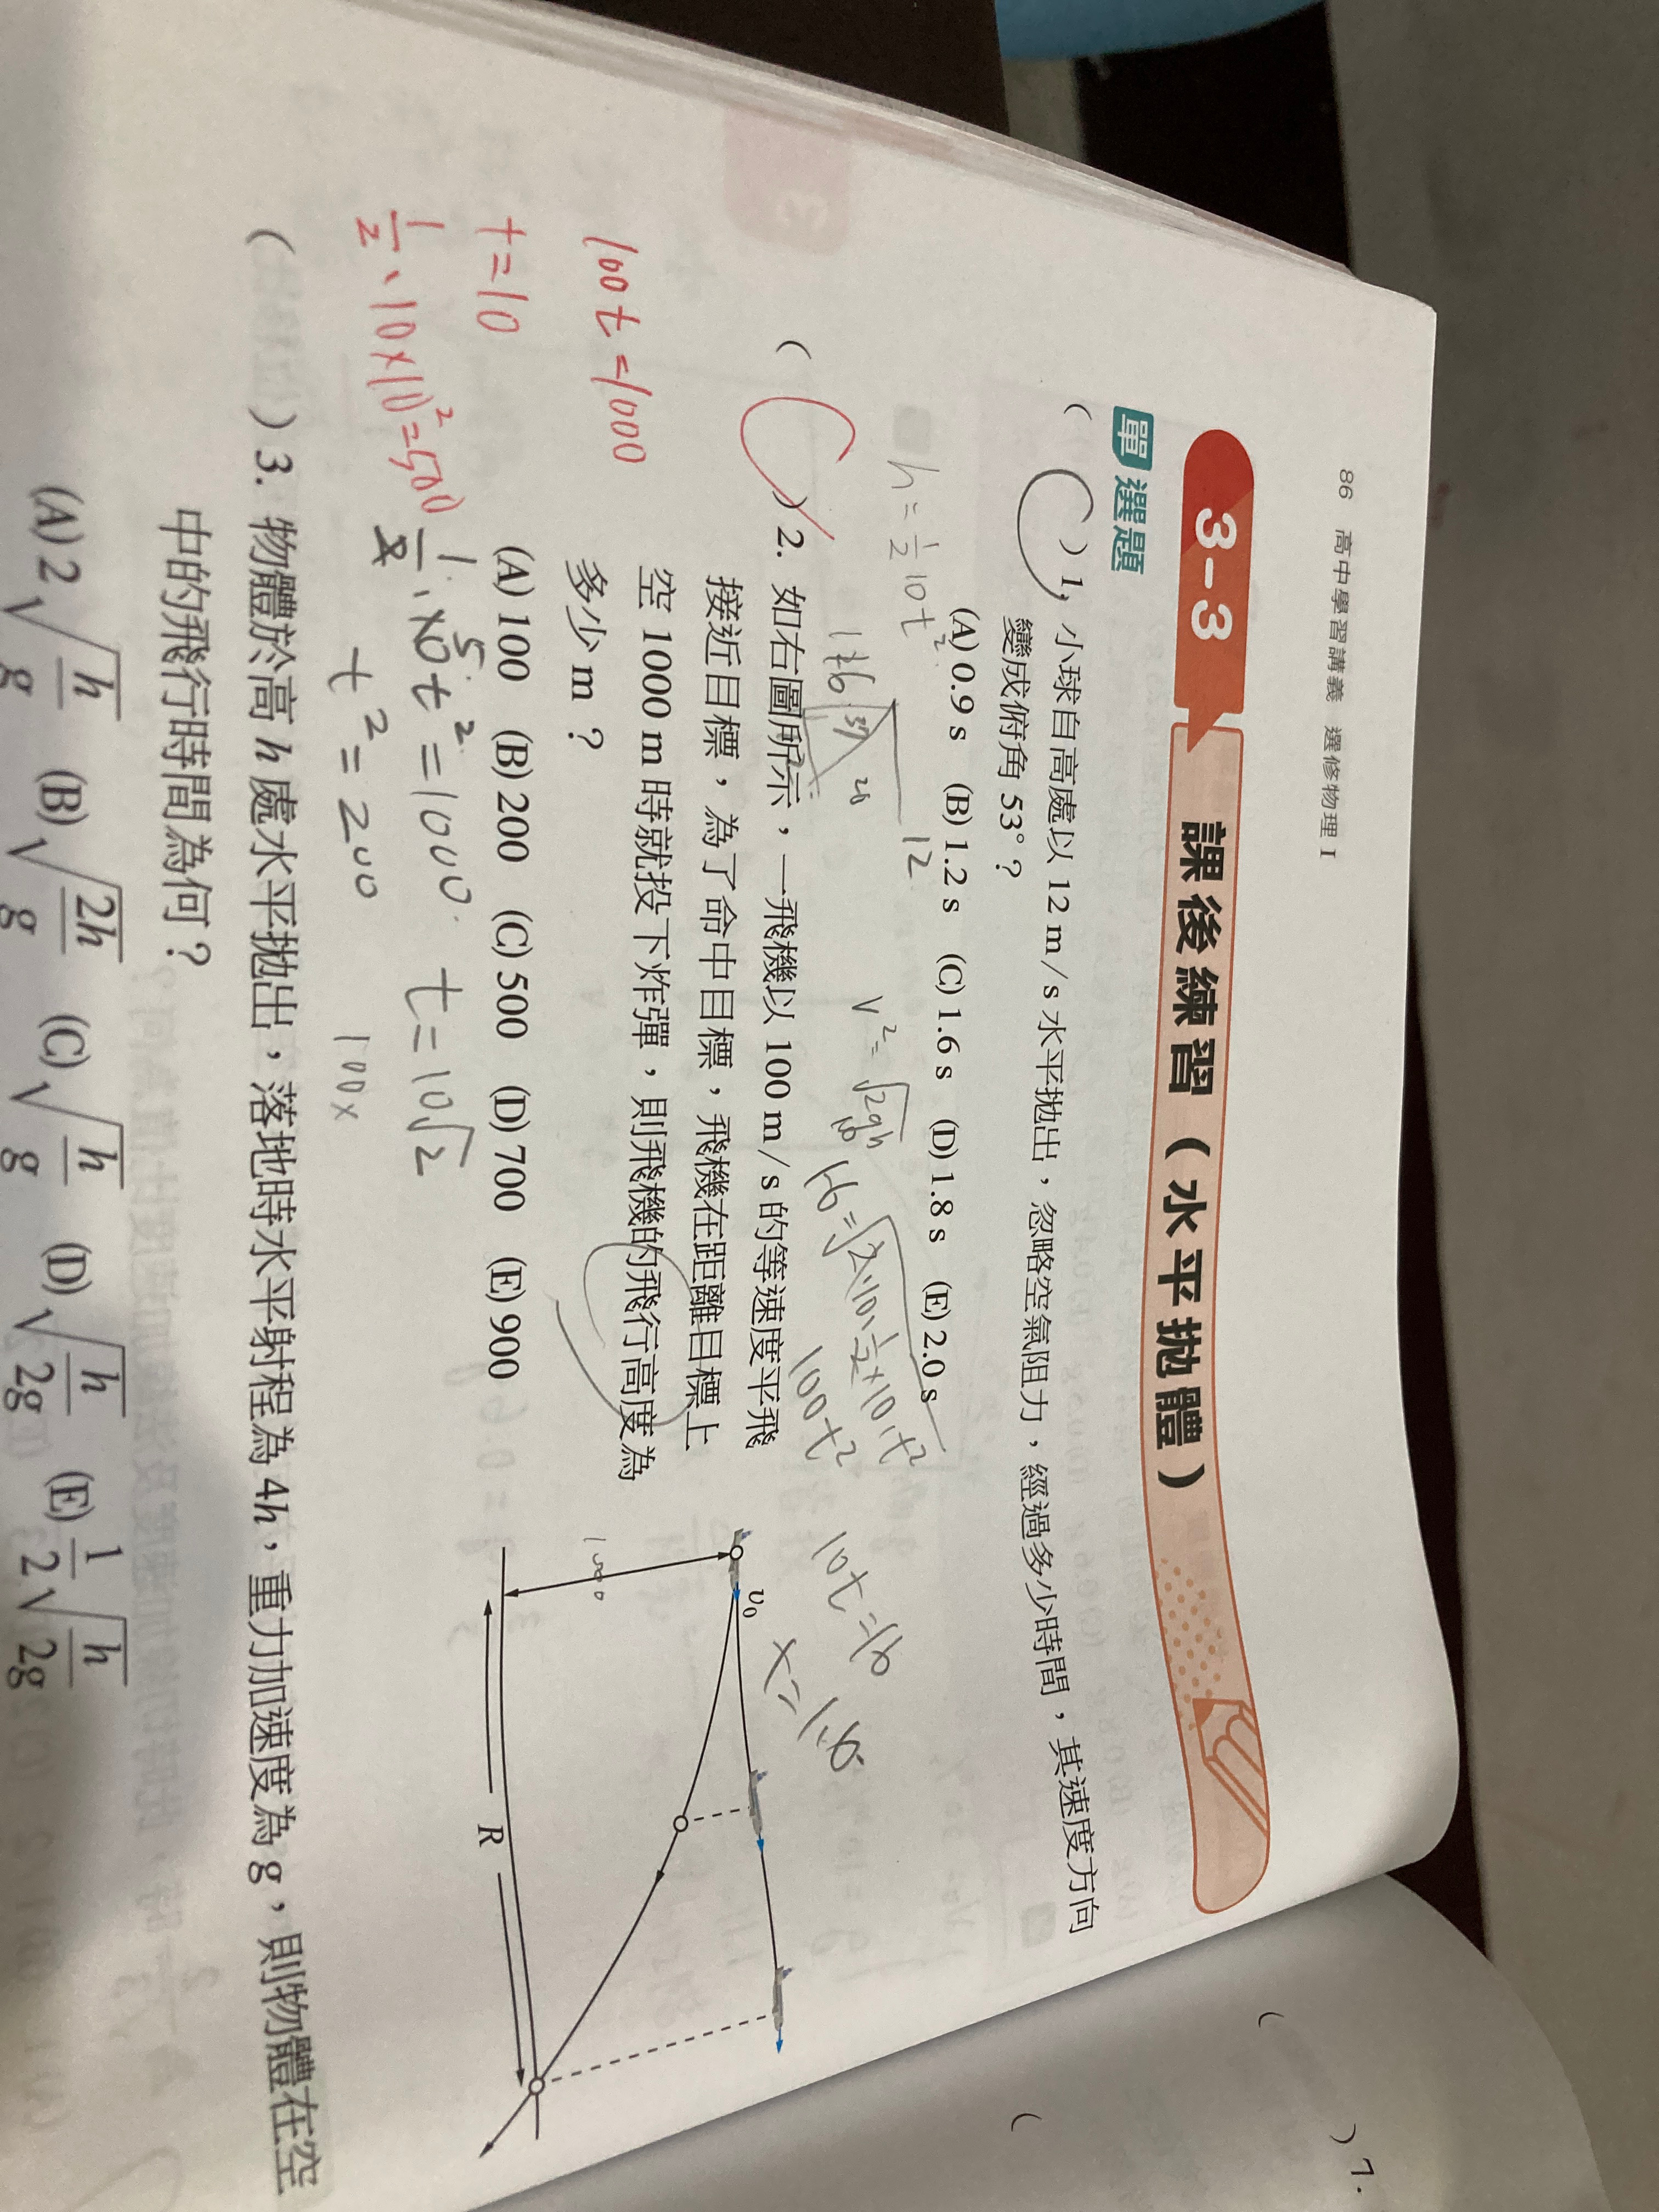 86 高中學習講義 選修物理 I
3-3 課後練習(水平拋體)
單選題
( C ) 1. 小球自高處以 12 m/s 水平拋出,忽略空氣阻力,經過多少時間,其速度方向
變成俯角 53°?
(A) 0.9 s (B) 1.2 s (C) 1.6 s (D) 1.8 s (E) 2.0 s
12
h = 1/2 10t²
16
37
20
V² = √2gh
16 = √2×10×1/2×10×t²
100t²
10t = 16
( C ) 2. 如右圖所示,一飛機以 100 m/s 的等速度平飛
接近目標,為了命中目標,飛機在距離目標上
空 1000 m 時就投下炸彈,則飛機的飛行高度為
多少 m?
(A) 100 (B) 200 (C) 500 (D) 700 (E) 900
υ₀
1000
R
100t = 1000
t = 10
1/2 · 10 × 10² = 500
t² = 1000
t² = 200
t = 10√2
100x
( ) 3. 物體於高 h 處水平拋出,落地時水平射程為 4h,重力加速度為 g,則物體在空
中的飛行時間為何?
(A) 2√(h/g) (B) √(2h/g) (C) √(h/g) (D) √(h/2g) (E) 1/2 √(h/2g)
(
) 7.
(